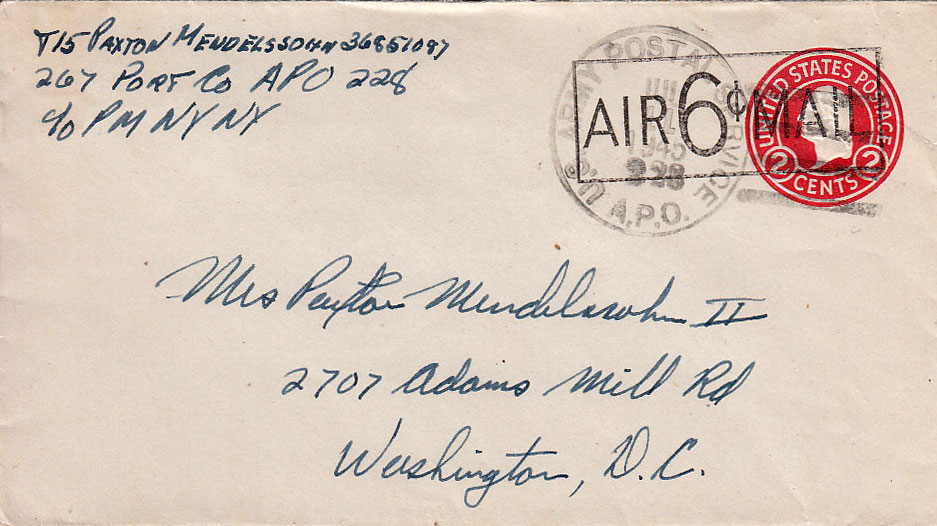 T/5 PAXTON MENDELSSOHN 36851087
267 PORT Co APO 228
c/o PM NY NY
U.S. ARMY POSTAL SERVICE
1945
228
A.P.O.
AIR 6¢ MAIL
UNITED STATES POSTAGE
2 CENTS 2
Mrs Paxton Mendelssohn II
2707 Adams Mill Rd
Washington, D.C.